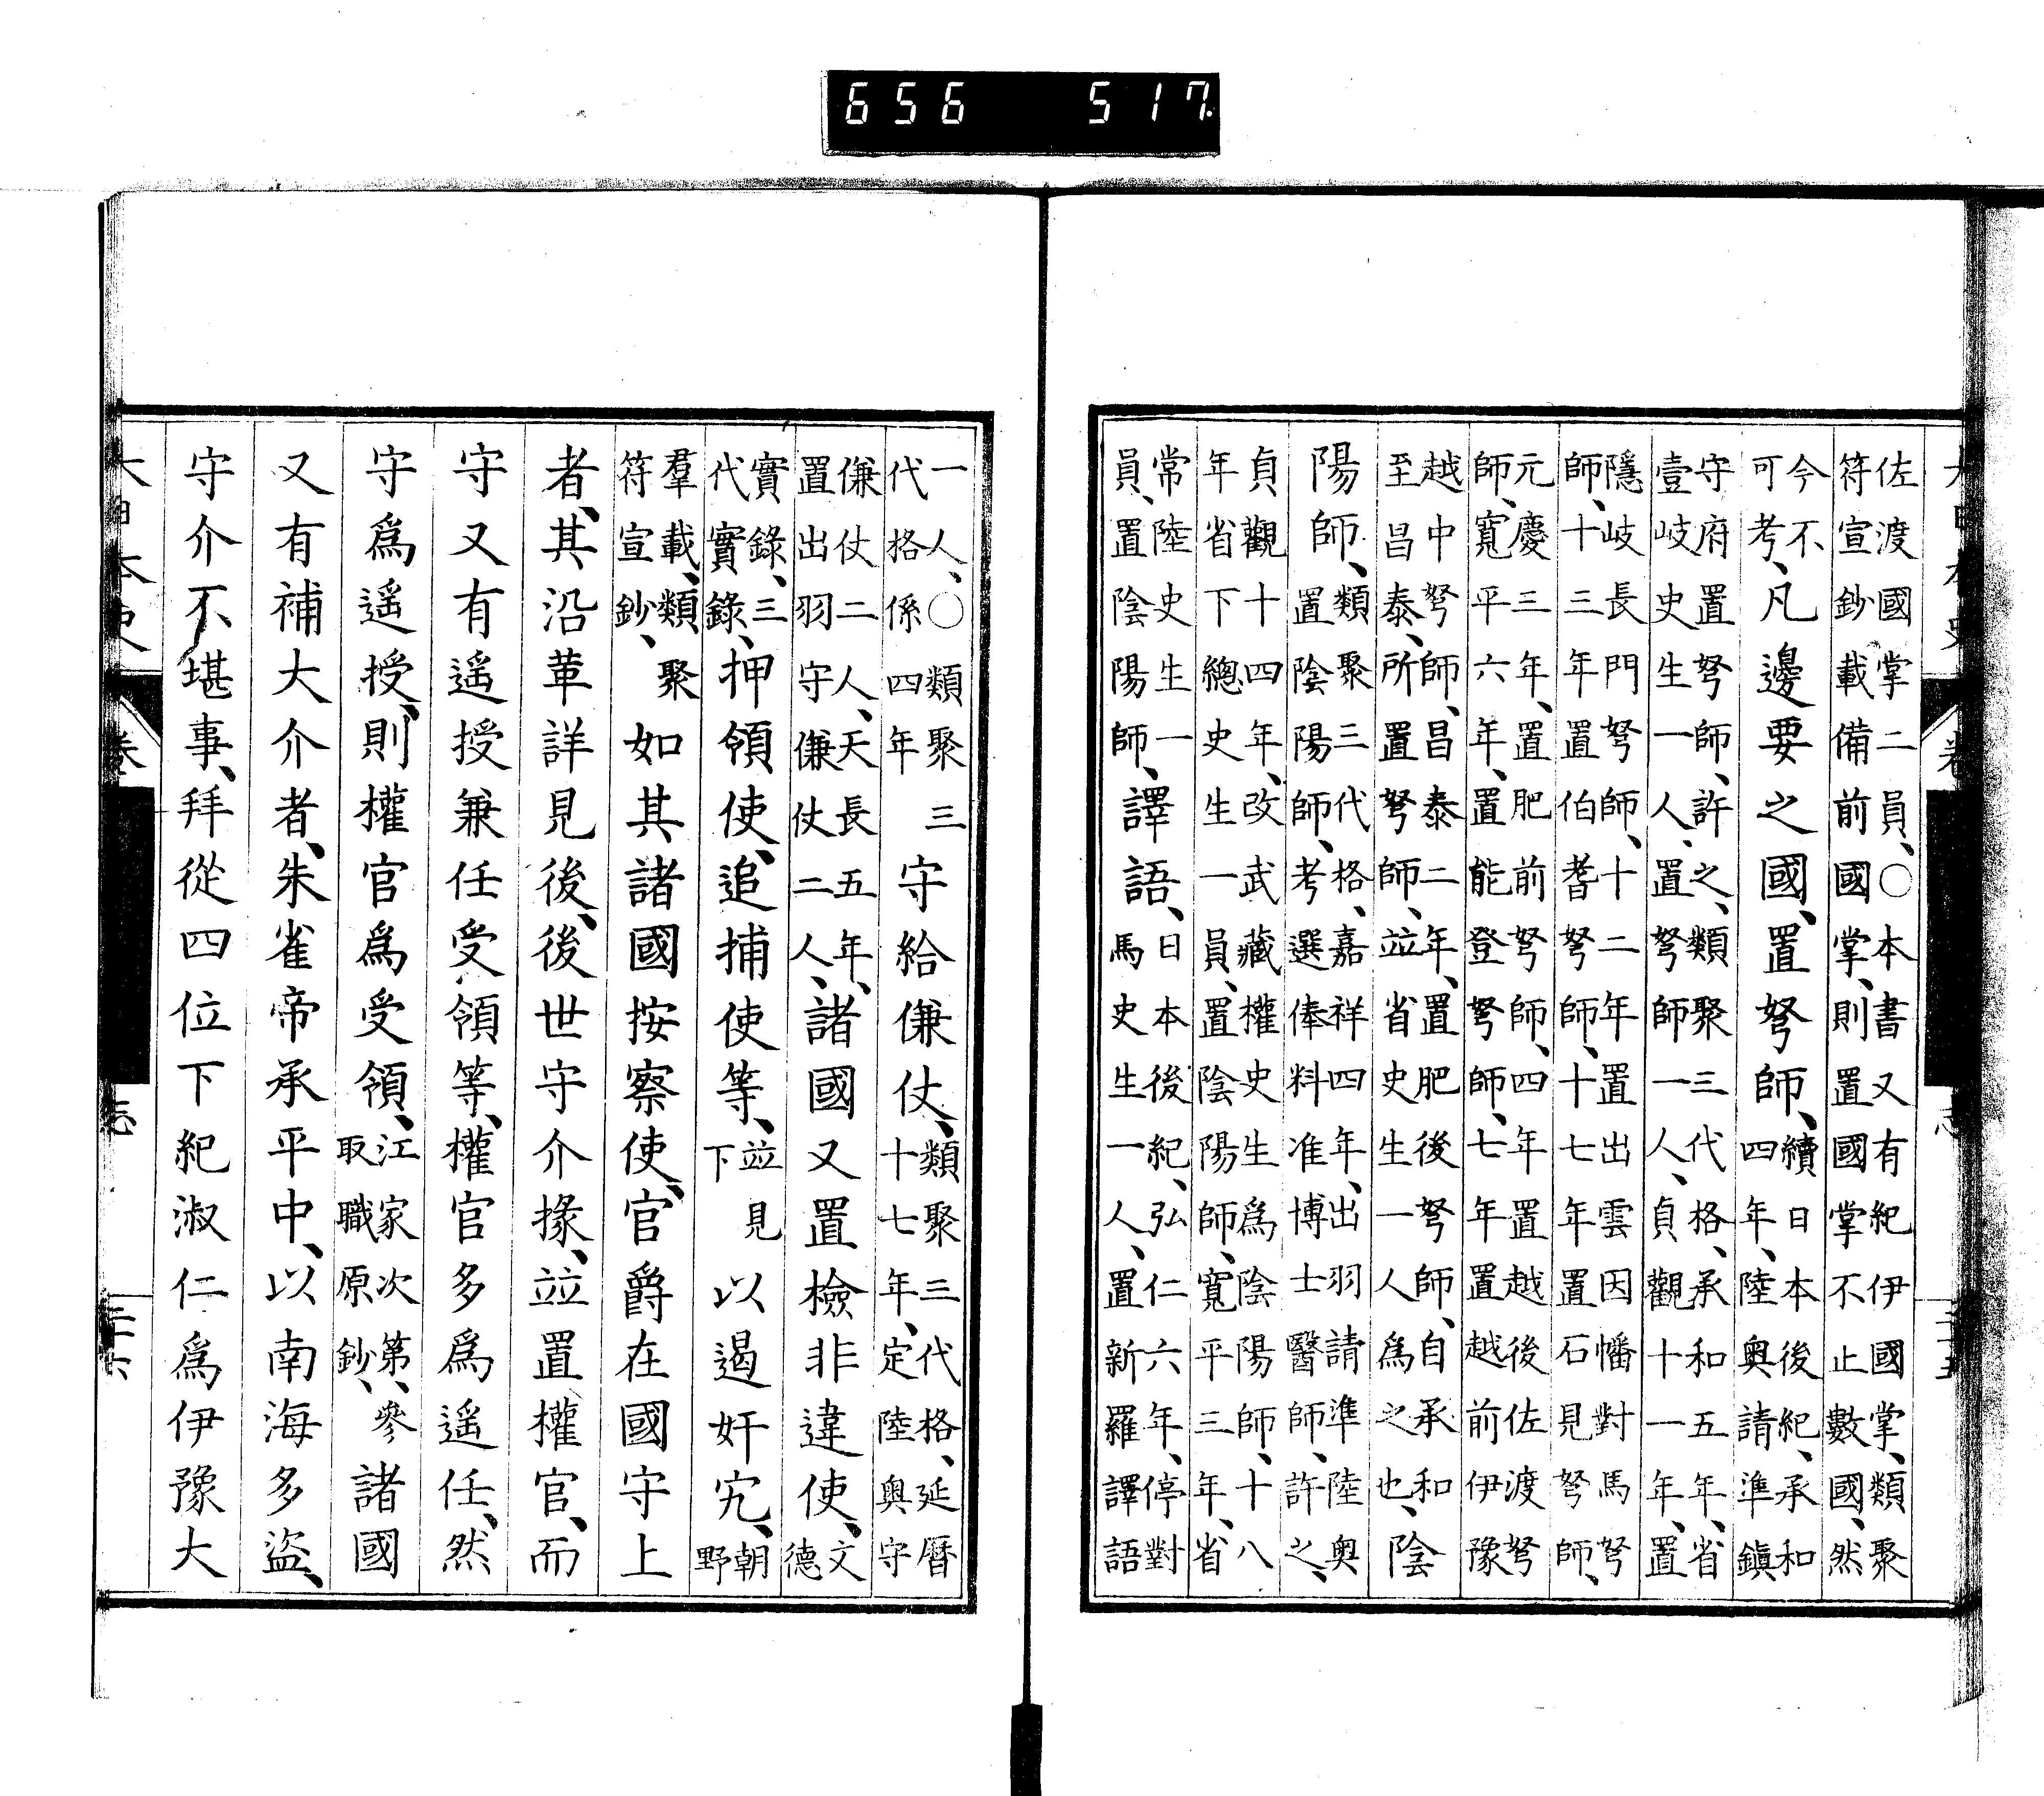 656 517
佐渡國掌二員、○本書又有紀伊國掌、類聚
符宣鈔載備前國掌、則置國掌不止數國、然
今不
可考、凡邊要之國、置弩師、續日本後紀、承和
四年、陸奧請準鎭
守府置弩師、許之、類聚三代格、承和五年、省
壹岐史生一人、置弩師一人、貞觀十一年、置
隱岐長門弩師、十二年置出雲因幡對馬弩
師、十三年置伯耆弩師、十七年置石見弩師、
元慶三年、置肥前弩師、四年置越後佐渡弩
師、寬平六年、置能登弩師、七年置越前伊豫
越中弩師、昌泰二年、置肥後弩師、自承和
至昌泰、所置弩師、竝省史生一人爲之也、陰
陽師、類聚三代格、嘉祥四年、出羽請準陸奧
置陰陽師、考選俸料准博士醫師、許之、
貞觀十四年、改武藏權史生爲陰陽師、十八
年省下總史生一員、置陰陽師、寬平三年、省
常陸史生一
員、置陰陽師、譯語、日本後紀、弘仁六年、停對
馬史生一人、置新羅譯語
一人、○類聚三
代格係四年守給傔仗、類聚三代格、延曆
十七年、定陸奧守
傔仗二人、天長五年、
置出羽守傔仗二人、諸國又置檢非違使、文
德
實錄、三
代實錄、押領使、追捕使等、竝見
下以遏奸宄、朝
野
羣載、類聚
符宣鈔、如其諸國按察使、官爵在國守上
者、其沿革詳見後、後世守介掾、竝置權官、而
守又有遥授兼任受領等、權官多爲遥任、然
守爲遥授、則權官爲受領、江家次第、參
取職原鈔、諸國
又有補大介者、朱雀帝承平中、以南海多盜、
守介不堪事、拜從四位下紀淑仁爲伊豫大